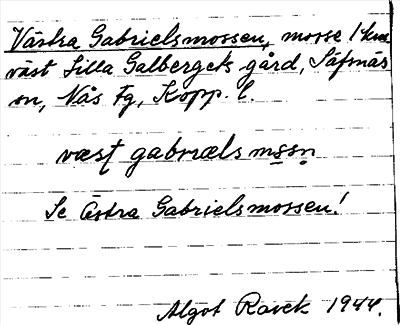 Västra Gabrielsmossen, mosse 1 km
väst Lilla Galbergets gård, Säfsnäs
sn, Nås Fg, Kopp. l.
væst gabriæls mssn
Se Östra Gabrielsmossen!
Algot 1944.